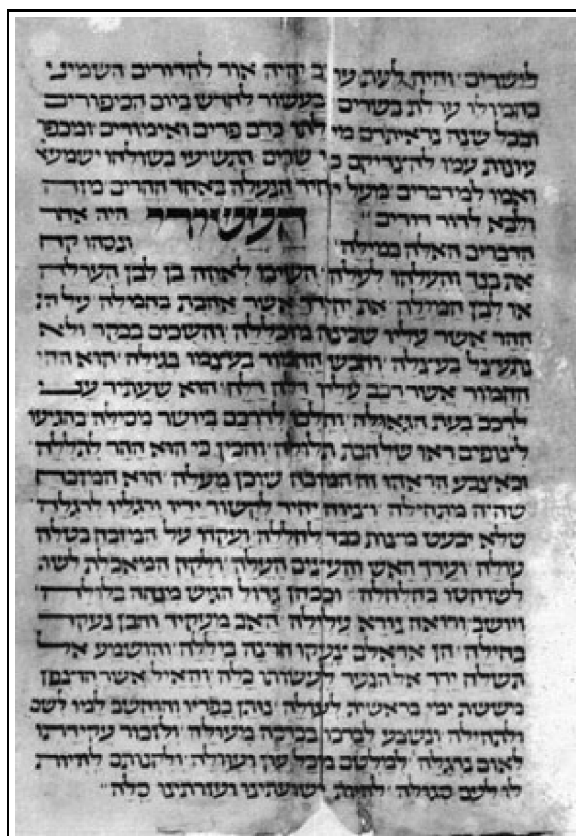 לישרים והיה לעת ערב יהיה אור להדורים השמיני
בהמולו ערלת בשרים בעשור לחדש ביום הכיפורים
ובכל שנה מילתו כדם פרים ואימורים ומכפר
עונות עמו כי שבים התשיעי בשולחו ישמעא
ואמו למדברים מעל יחיד הנעלה באחד ההרים מורה
ולבא לדור דורים העשירי היה אחר
הדברים האלה במילה ונסהו קח
את בנך והעלהו לעלה השיבו לאיזה בן לבן הערלה
או לבן המילה את יחידך אשר אהבת בחמלה על הר
ההר אשר עליו שכינה מוכללה והשכים בבקר ולא
נתעצל בעיצלה וחבש החמור בעצמו בגילה הוא
החמור אשר רכב עליו דלה דלה הוא שעתיד עני
לרכב בעת הגאולה והלכו לדרכם ביושר מסילה בהגיעו
לצופים ראו שלהבת תלולה והבין כי הוא ההר
ובאיצבע הראהו זה המזבח שוכן מעלה הוא המזבח
שהיה מתחילה יחיד לקשור ידיו ורגליו
שלא יבעט מצות כבד לחללה ועקדו על המזבח כטלה
עולה וערך האש והעצים העלה ולקח המאכלת
לשוחטו בחלחלה וככהן גדול הגיש מנחה בלולה
ויושב ורואה נורא עלילה האב מעקיד והבן נעקד
בחילה הן אראלם צעקו חוצה ביללה והושמע אל
תשלח ידך אל הנער לעשותו כלה והאיל אשר הוצפן
מששת ימי בראשית לעולה נותן בפריו והוחשב למו
ולתהילה ונשבע לברכו בברכה מעולה ולזכור עקידתו
לאום
לו לעם סגולה לחיות ישועתינו ועזרתינו סלה